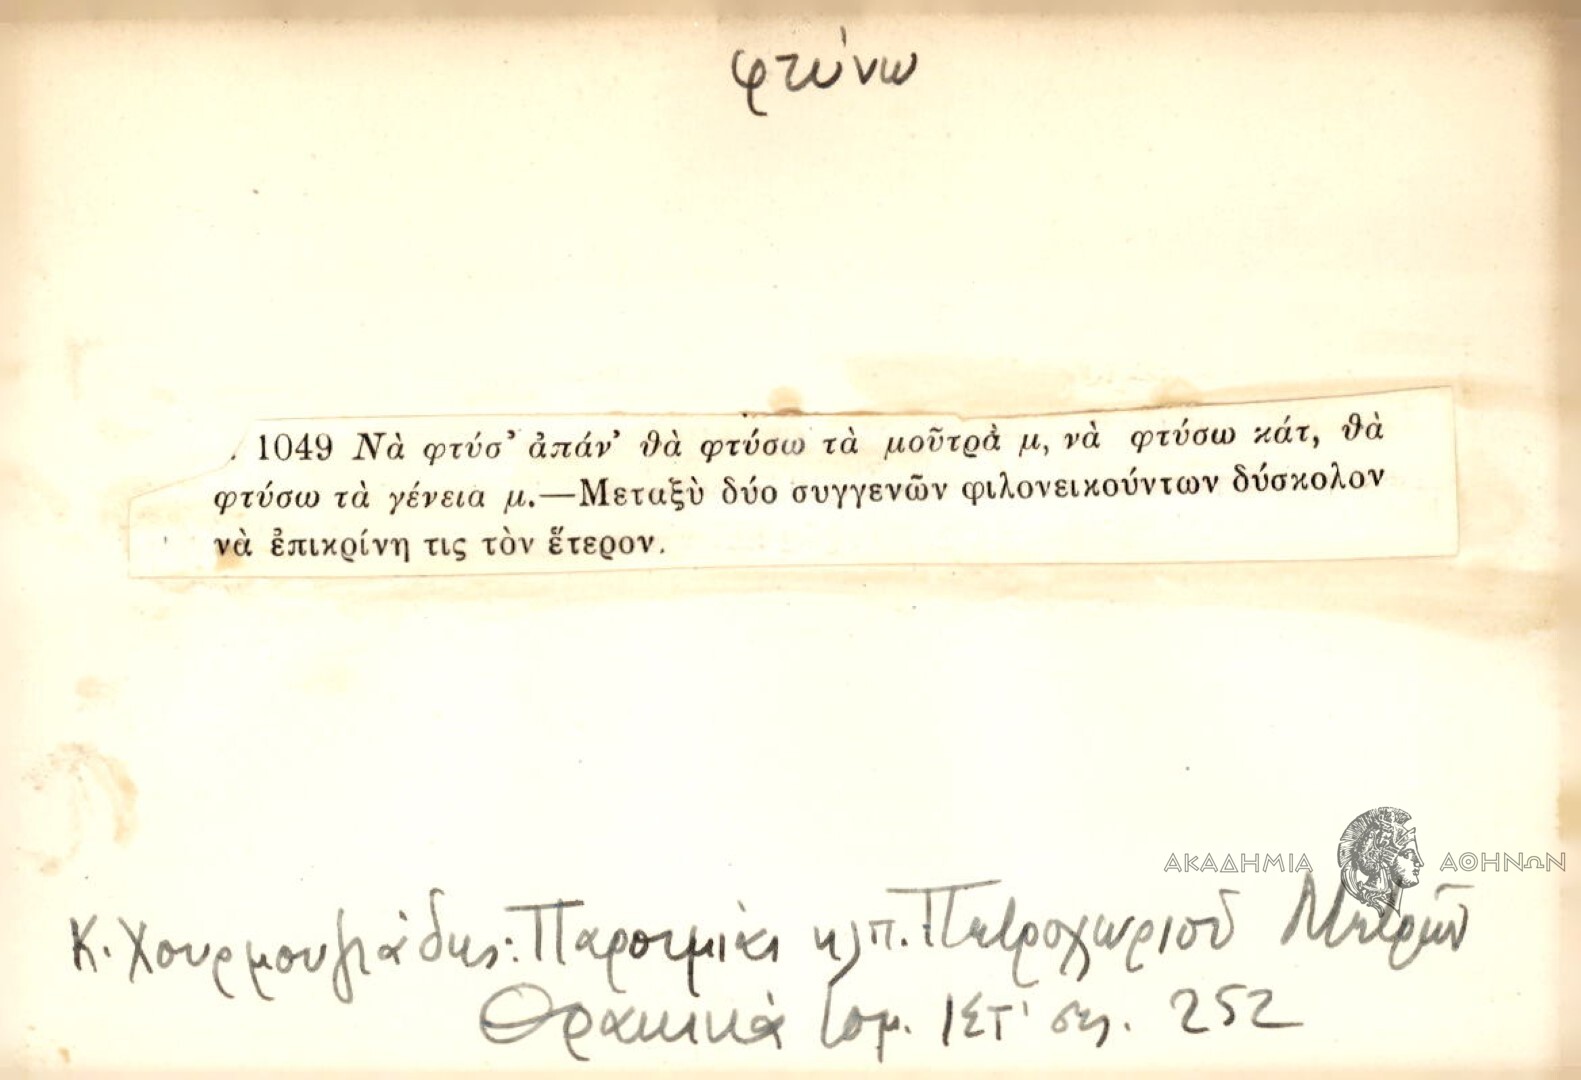 φτύνω
1049 Νὰ φτύσ' ἀπάν' θὰ φτύσω τὰ μοῦτρα μ, νὰ φτύσω κάτ, θὰ
φτύσω τὰ γένεια μ.—Μεταξὺ δύο συγγενῶν φιλονεικούντων δύσκολον
νὰ ἐπικρίνη τις τὸν ἕτερον.
ΑΚΑΔΗΜΙΑ ΑΘΗΝΩΝ
Κ. Χουρμουζιάδης: Παροιμίαι κλπ. Πετροχωριοῦ Μετρῶν
Θρακικὰ τομ. ΙΣΤ' σελ. 252